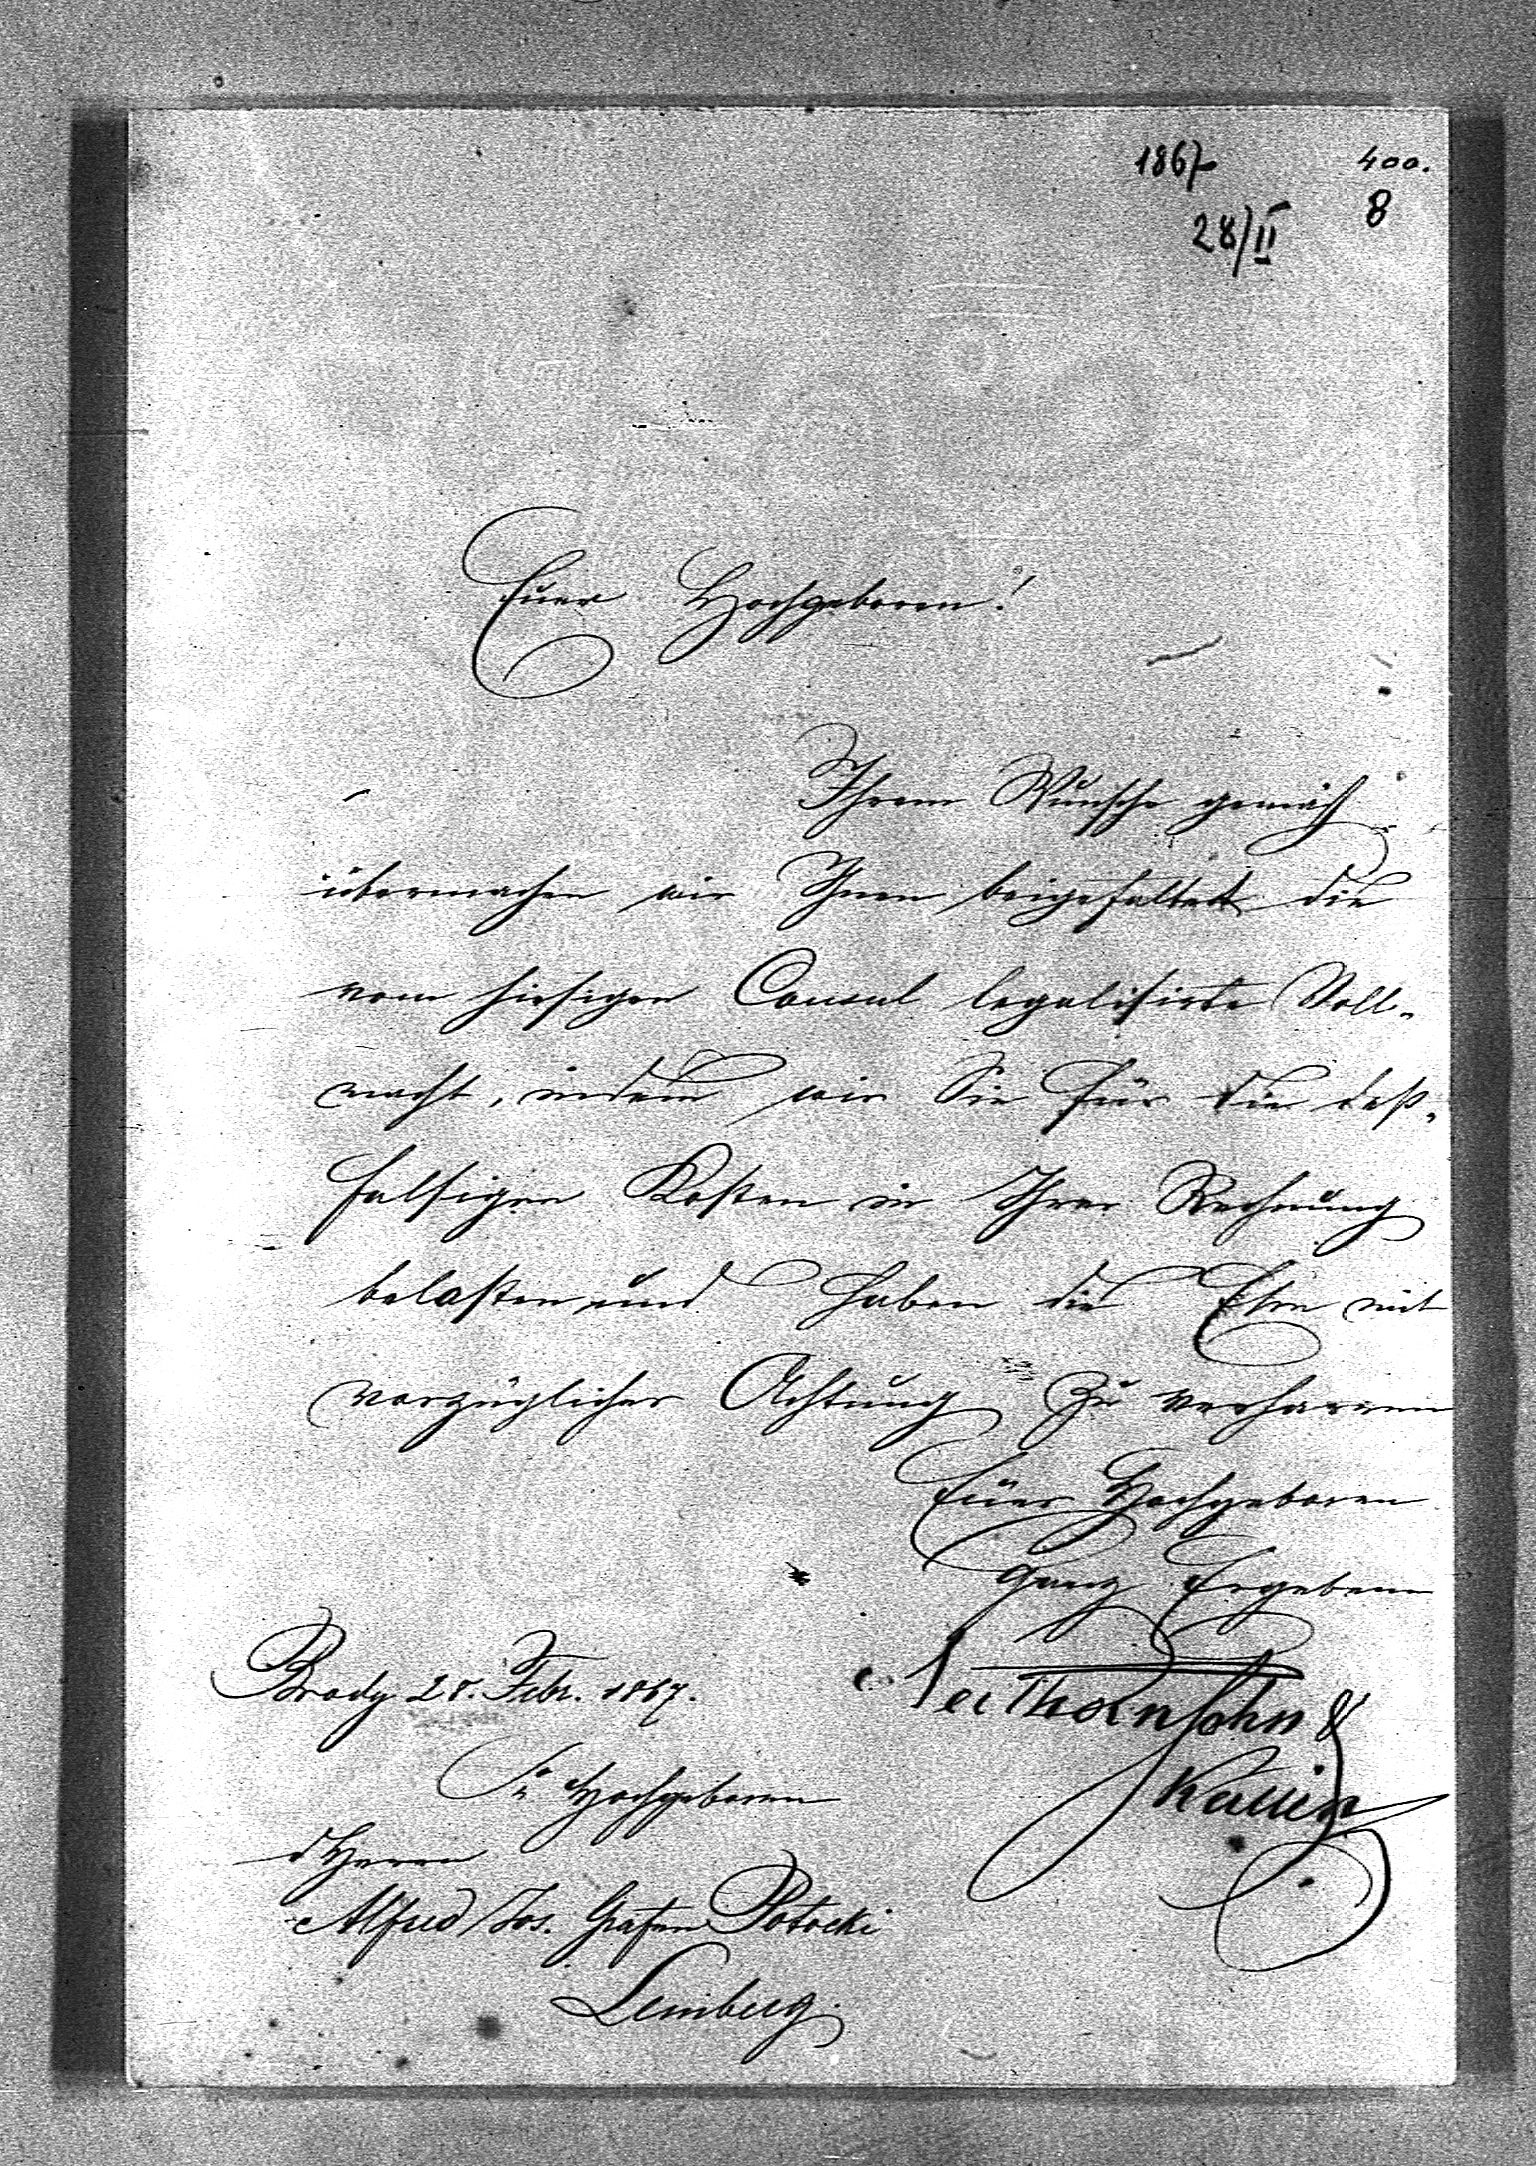 1867 400.
28/II 8
Euer Hochgeboren!
Ihrem Wunsche gemäß
übermachen wir Ihnen beigefaltet die
vom hiesigen Consul legalisirte Voll-
macht, indem wir Sie für die deß-
falsigen Kosten in Ihrer Rechnung
belasten und haben die Ehre mit
vorzüglicher Achtung zu verharren
Euer Hochgeboren
Ganz Ergebene
Nathansohn &
Kallir
Brody 28. Febr. 1867.
Sr Hochgeboren
Herrn
Alfred Jos. Grafen Potocki
Lemberg.